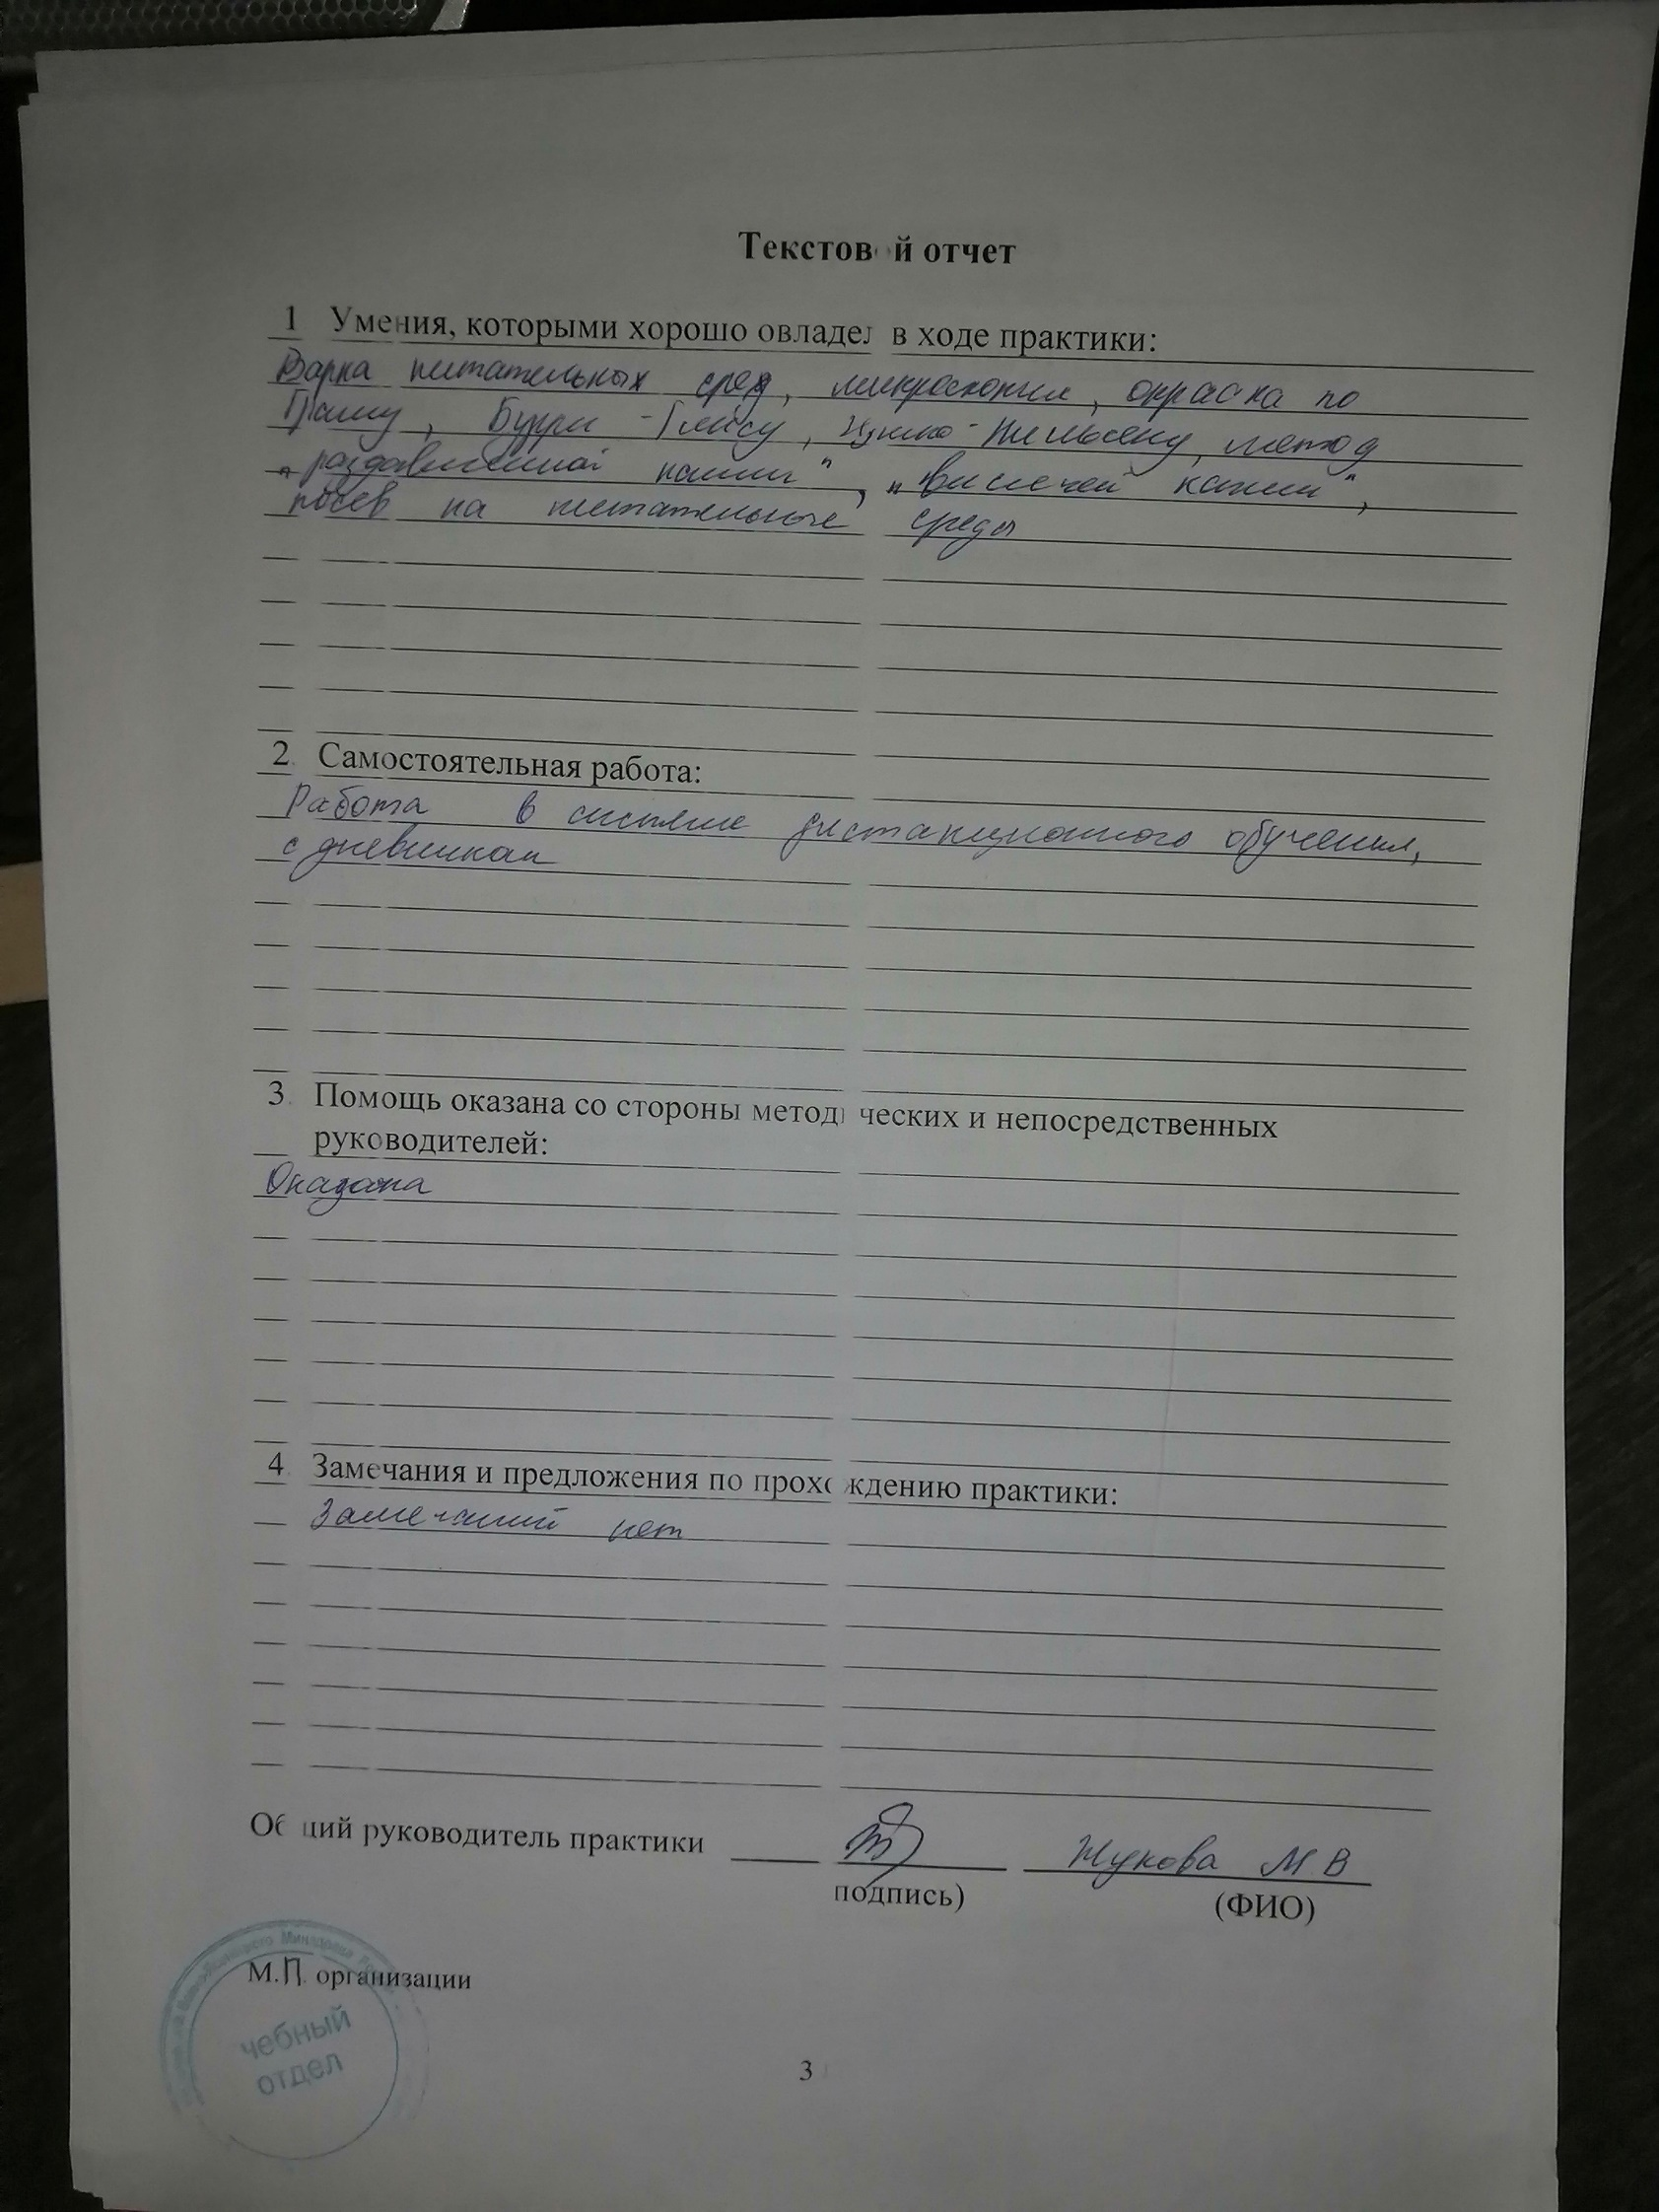 Текстовой отчет
1 Умения, которыми хорошо овладел в ходе практики:
Варка питательных сред, микроскопия, окраска по
Граму, Бурри-Гинсу, Цилю-Нильсену, метод
„раздавленной капли", „висячей капли",
посев на питательные среды
2. Самостоятельная работа:
Работа в системе дистанционного обучения,
с дневником
3. Помощь оказана со стороны методических и непосредственных
руководителей:
Оказана
4 Замечания и предложения по прохождению практики:
Замечаний нет
Общий руководитель практики
Жукова М В
подпись)
(ФИО)
М.П. организации
чебный
отдел
3